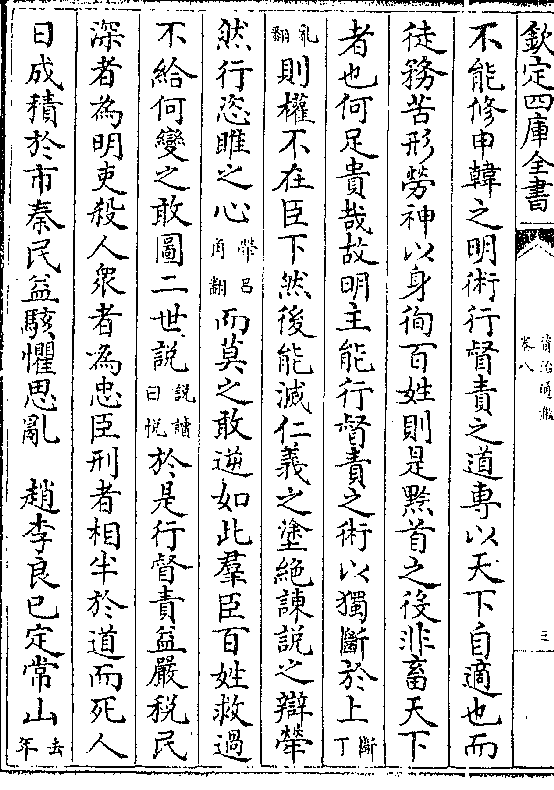 欽定四庫全書 資治通鑑 卷八 三
不能修申韓之明術行督責之道專以天下自適也而
徒務苦形勞神以身徇百姓則是黔首之役非畜天下
者也何足貴哉故明主能行督責之術以獨斷於上斷丁
亂翻則權不在臣下然後能滅仁義之塗絶諫説之辯犖
然行恣睢之心犖呂角翻而莫之敢逆如此羣臣百姓救過
不給何變之敢圖二世説説讀曰悅於是行督責益嚴税民
深者為明吏殺人衆者為忠臣刑者相半於道而死人
日成積於市秦民益駭懼思亂 趙李良已定常山去年